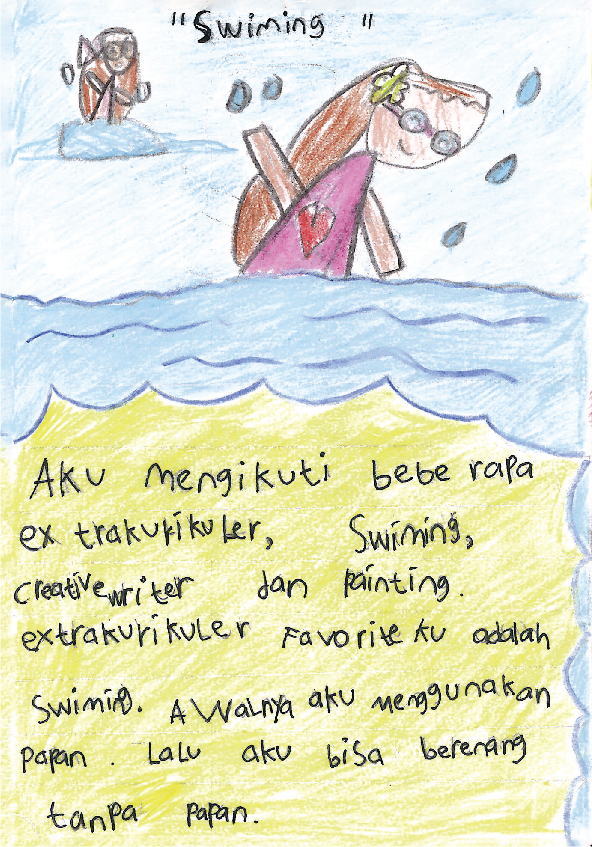 "Swiming"
Aku mengikuti bebe rapa
ex trakurikuler, Swiming,
Creative writer dan painting.
extrakurikuler Favorite ku adalah
Swiming. Awalnya aku menggunakan
papan. Lalu aku bisa berenang
tanpa papan.